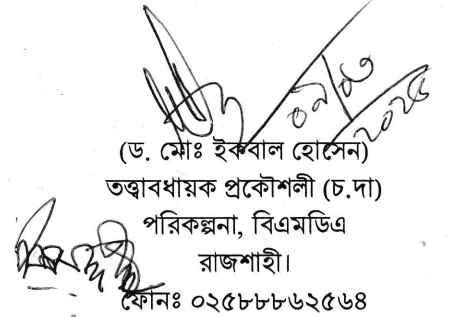 (ড. মোঃ ইকবাল হোসেন)
তত্ত্বাবধায়ক প্রকৌশলী (চ.দা)
পরিকল্পনা, বিএমডিএ
রাজশাহী।
ফোনঃ ০২৫৮৮৮৬২৫৬৪